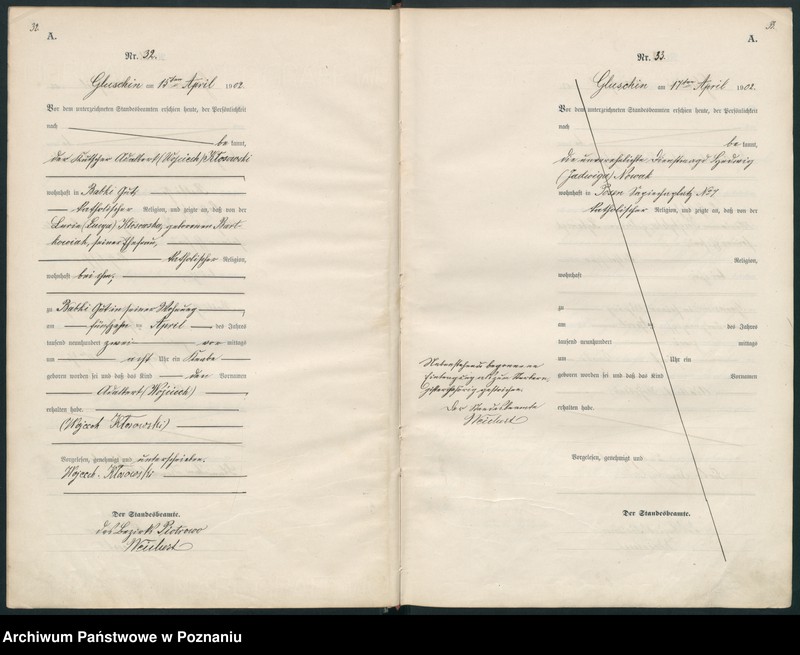 32.
A.
Nr. 32.
Gluschin am 15ten April 1902.
Vor dem unterzeichneten Standesbeamten erschien heute, der Persönlichkeit
nach
be kannt,
der Kutscher Adalbert (Wojciech) Kłosowski
wohnhaft in Babki Gut
katholischer Religion, und zeigte an, daß von der
Lucia (Łucya) Kłosowska, geborenen Bart-
kowiak, seiner Ehefrau,
katholischer Religion,
wohnhaft bei ihm,
zu Babki Gut in seiner Wohnung
am fünfzehn ten April des Jahres
tausend neunhundert zwei vor mittags
um acht Uhr ein Knabe
geboren worden sei und daß das Kind den Vornamen
Adalbert (Wojciech)
erhalten habe.
(Wojcech Kłosowski)
Vorgelesen, genehmigt und unterschrieben.
Wojcech Kłosowski
Der Standesbeamte.
des Bezirk Piotrowo
33.
A.
Nr. 33.
Gluschin am 17ten April 1902.
Vor dem unterzeichneten Standesbeamten erschien heute, der Persönlichkeit
nach
be kannt,
die unverehelichte Dienstmagd Hedwig
(Jadwiga) Nowak
wohnhaft in Posen Sapiehaplatz No 7
katholischer Religion, und zeigte an, daß von der
Religion,
wohnhaft
zu
am des Jahres
tausend neunhundert mittags
um Uhr ein
geboren worden sei und daß das Kind Vornamen
erhalten habe.
Vorgelesen, genehmigt und
Der Standesbeamte.
Nebenstehend begonnene
Eintragung als zum
gestrichen.
Der Standesbeamte
Archiwum Państwowe w Poznaniu